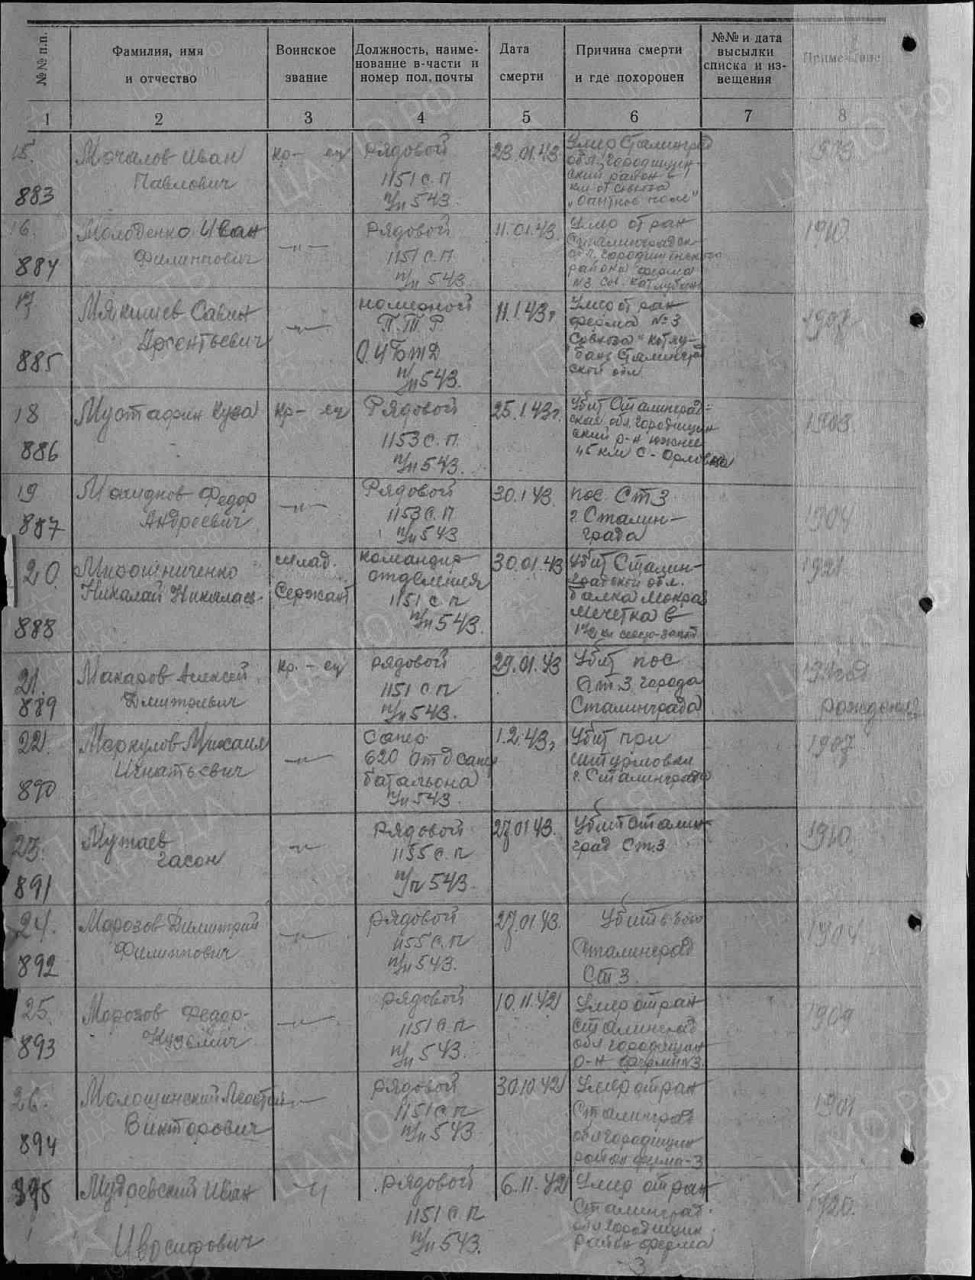 №№ п.п.
Фамилия, имя
и отчество
Воинское
звание
Должность, наиме-
нование в-части и
номер пол. почты
Дата
смерти
Причина смерти
и где похоронен
№№ и дата
высылки
списка и из-
вещения
Примечание
1 2 3 4 5 6 7 8
15.
883
Мочалов Иван
Павлович
кр- ец
Рядовой
1151 с.п
п/п 543.
23.01.43
Умер Сталинград
обл. городищен-
ский район в 1
км от совхоза
„Опытное поле"
1923
16.
884
Молоденко Иван
Филиппович
—„—
Рядовой
1151 с.п
п/п 543.
11.01.43.
Умер от ран
Сталинградск-
района ферма
№3 сов. котлубань
1910
17
885
Мякишев
—„—
П.Т.Р.
п/п 543.
11.1.43г
Умер от ран
ферма №3
Совхоза "Котлу-
бань Сталингра
ской обл
18
886
Мустафин
кр- ец
Рядовой
1153 с.п
п/п 543.
25.1.43г.
Убит Сталинград-
ская обл. городищен
ский р-н южнее
с-Орловка
1903.
19
887
Федор
Андреевич
—„—
Рядовой
1153 с.п
п/п 543
30.1.43
пос. Ст.3
г Сталин-
града
1904
20.
888
Мирошниченко
Николай Николаев-
млад.
Сержант
командир
отделения
1151 с.п
п/п 543.
30.01.43
Убит Сталин-
градской обл.
балка Мокрая
Мечетка в
1921
21.
889
Макаров Алексей
Дмитриевич
кр.-ец
рядовой
1151 с.п
п/п 543.
29.01.43
Убит пос
Ст.3 города
Сталинграда
год
рождения
22.
890
Меркулов Михаил
Игнатьевич
—„—
Сапер
620 Отд сапер
батальона
п/п 543.
1.2.43г
Убит при
штурмовки
г. Сталинграда
1907
23.
891
Мутаев
Гасон
—„—
Рядовой
1155 с.п
п/п 543.
27.01.43.
Убит Сталин-
град Ст.3
1910.
24.
892
Морозов Димитрий
Филиппович
—„—
рядовой
1155 с.п
п/п 543.
27.01.43.
Убит в бою
Сталинград
Ст 3.
1904
25.
893
Морозов Федор-
Кузьмич
—„—
рядовой
1151 с.п
п/п 543.
10.11.42
Умер от ран
Сталинград
обл городищен
р-н ферма №3.
1909
26.
894
Викторович
—„—
рядовой
1151 с.п
п/п 543
30.10.42
Умер от ран
Сталинград
обл городищен
район ферма-3
1901
895
Мудревский Иван
Иосифович
—„—
рядовой
1151 с.п
п/п 543.
6.11.42
Умер от ран
Сталинград.
обл городищен
район ферма
-3
1920.
ПАМЯТЬ НАРОДА
ЦАМО.РФ